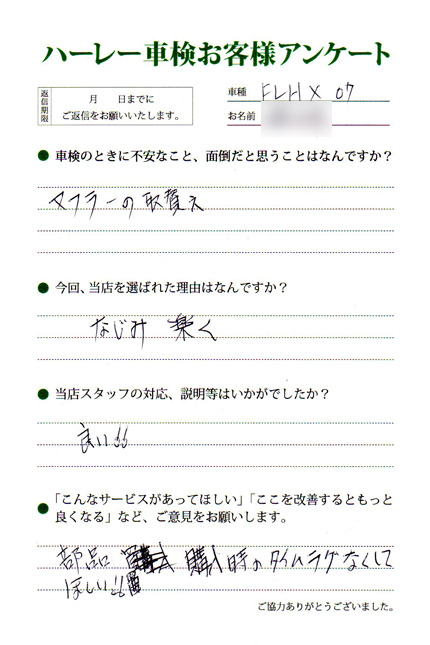 ハーレー車検お客様アンケート
返信期限
月 日までに
ご返信をお願いいたします。
車種 FLHX 07
お名前
● 車検のときに不安なこと、面倒だと思うことはなんですか？
マフラーの取賛え
● 今回、当店を選ばれた理由はなんですか？
なじみ 楽く
● 当店スタッフの対応、説明等はいかがでしたか？
良い!!
● 「こんなサービスがあってほしい」「ここを改善するともっと
良くなる」など、ご意見をお願いします。
部品 購入時のタイムラグなくして
ほしい!!
ご協力ありがとうございました。